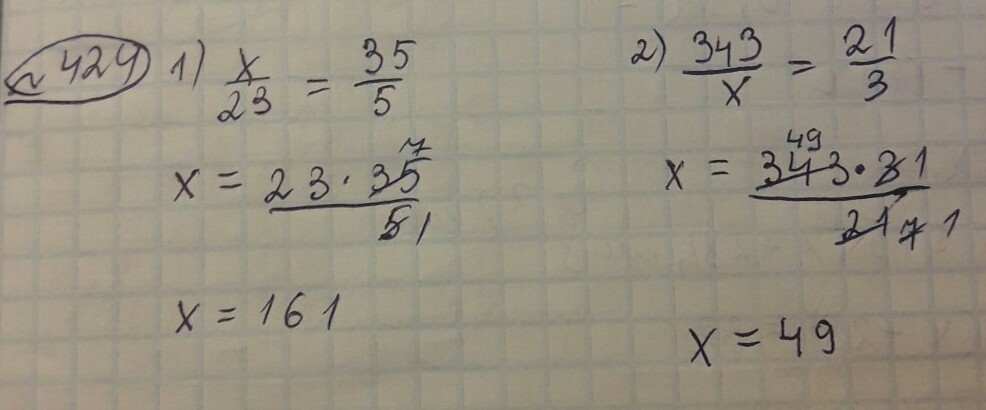 № 429 1) x/23 = 35/5
x = 23 · 35 7 / 5 1
x = 161
2) 343/x = 21/3
x = 49 343 · 3 1 / 21 7 1
x = 49